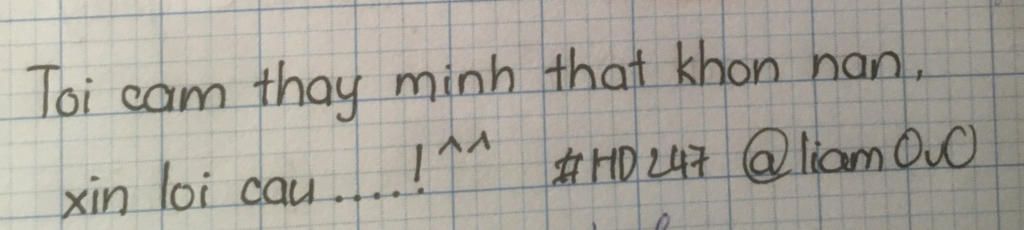 Toi cam thay minh that khon nan,
xin loi cau.....!^^ #HD247 @liamOvO